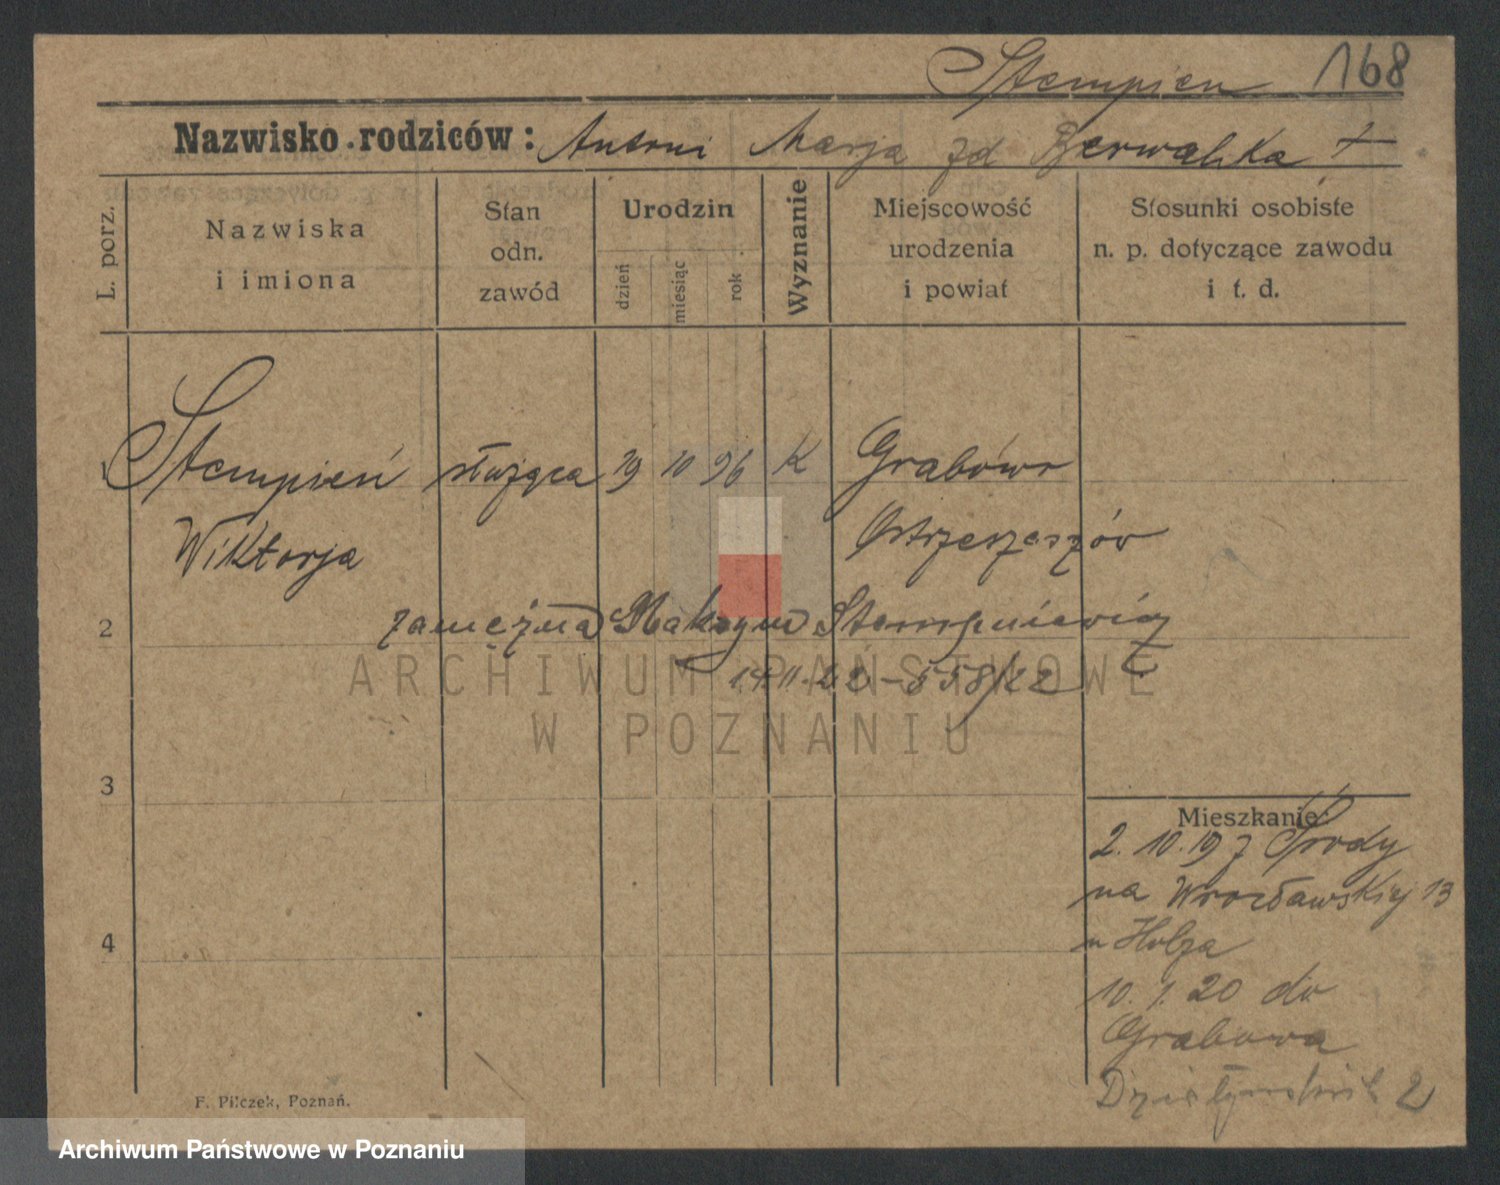 Stempien 168
Nazwisko rodziców: Antoni Marja zd Berwalska +
L. porz.
Nazwiska
i imiona
Stan
odn.
zawód
Urodzin
dzień
miesiąc
rok
Wyznanie
Miejscowość
urodzenia
i powiat
Stosunki osobiste
n. p. dotyczące zawodu
i t. d.
1 Stempień służąca 19 10 96 K Grabów
Wiktorja Ostrzeszów
2 zamężna Maksym Stempniewicz
14.11.22 - 558/22
3
Mieszkanie:
2. 10. 19 z Środy
na Wrocławskiej 13
u Holza
4
10. 1. 20 do
Grabowa
2
F. Pilczek, Poznań.
ARCHIWUM PAŃSTWOWE
W POZNANIU
Archiwum Państwowe w Poznaniu